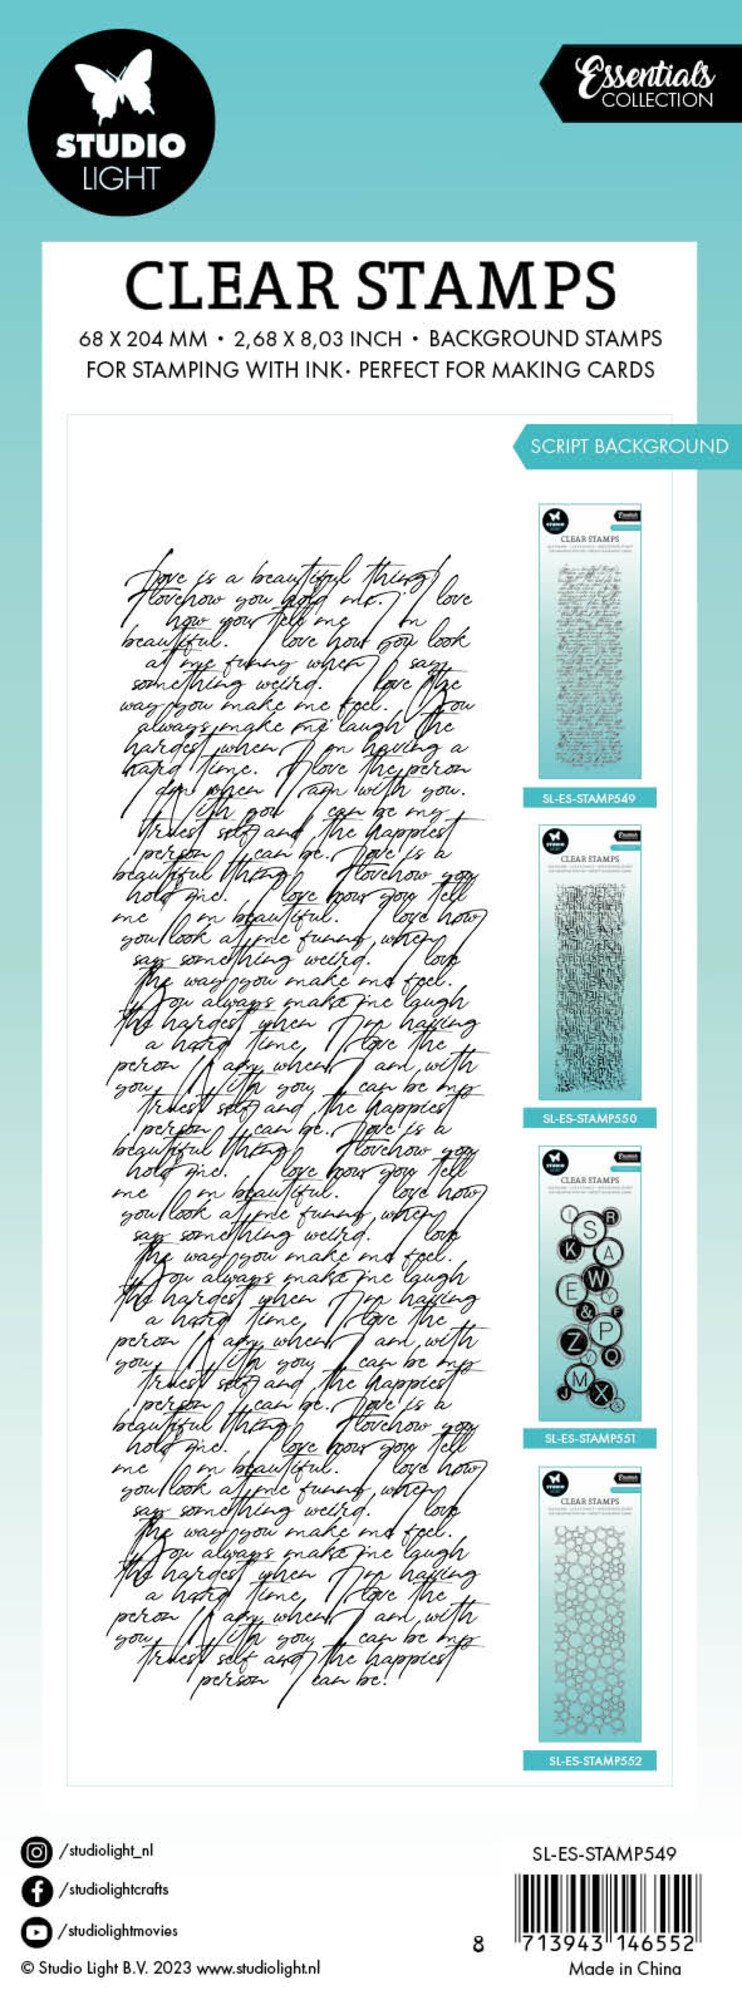 STUDIO
LIGHT
Essentials
COLLECTION
CLEAR STAMPS
68 X 204 MM • 2,68 X 8,03 INCH • BACKGROUND STAMPS
FOR STAMPING WITH INK• PERFECT FOR MAKING CARDS
SCRIPT BACKGROUND
Love is a beautiful thing!
I lovehow you hold me. I love
how you tell me I'm
beautiful. I love how you look
at me funny when I say
something weird. I love the
way you make me feel. You
always make me laugh the
hardest when I'm having a
hard time. I love the person
I am when I am with you.
With you I can be my
truest self and the happiest
person I can be. Love is a
beautiful thing! I lovehow you
hold me. I love how you tell
me I'm beautiful. I love how
you look at me funny when I
say something weird. I love
the way you make me feel.
You always make me laugh
the hardest when I'm having
a hard time. I love the
person I am when I am with
you. With you I can be my
truest self and the happiest
person I can be. Love is a
beautiful thing! I lovehow you
hold me. I love how you tell
me I'm beautiful. I love how
you look at me funny when I
say something weird. I love
the way you make me feel.
You always make me laugh
the hardest when I'm having
a hard time. I love the
person I am when I am with
you. With you I can be my
truest self and the happiest
person I can be. Love is a
beautiful thing! I lovehow you
hold me. I love how you tell
me I'm beautiful. I love how
you look at me funny when I
say something weird. I love
the way you make me feel.
You always make me laugh
the hardest when I'm having
a hard time. I love the
person I am when I am with
you. With you I can be my
truest self and the happiest
person I can be!
CLEAR STAMPS
SL-ES-STAMP549
CLEAR STAMPS
SL-ES-STAMP550
CLEAR STAMPS
I R
S
K A
E W Y
& F
P
Z Q
M
J X
SL-ES-STAMP551
CLEAR STAMPS
SL-ES-STAMP552
/studiolight_nl
/studiolightcrafts
/studiolightmovies
© Studio Light B.V. 2023 www.studiolight.nl
SL-ES-STAMP549
8 713943 146552
Made in China